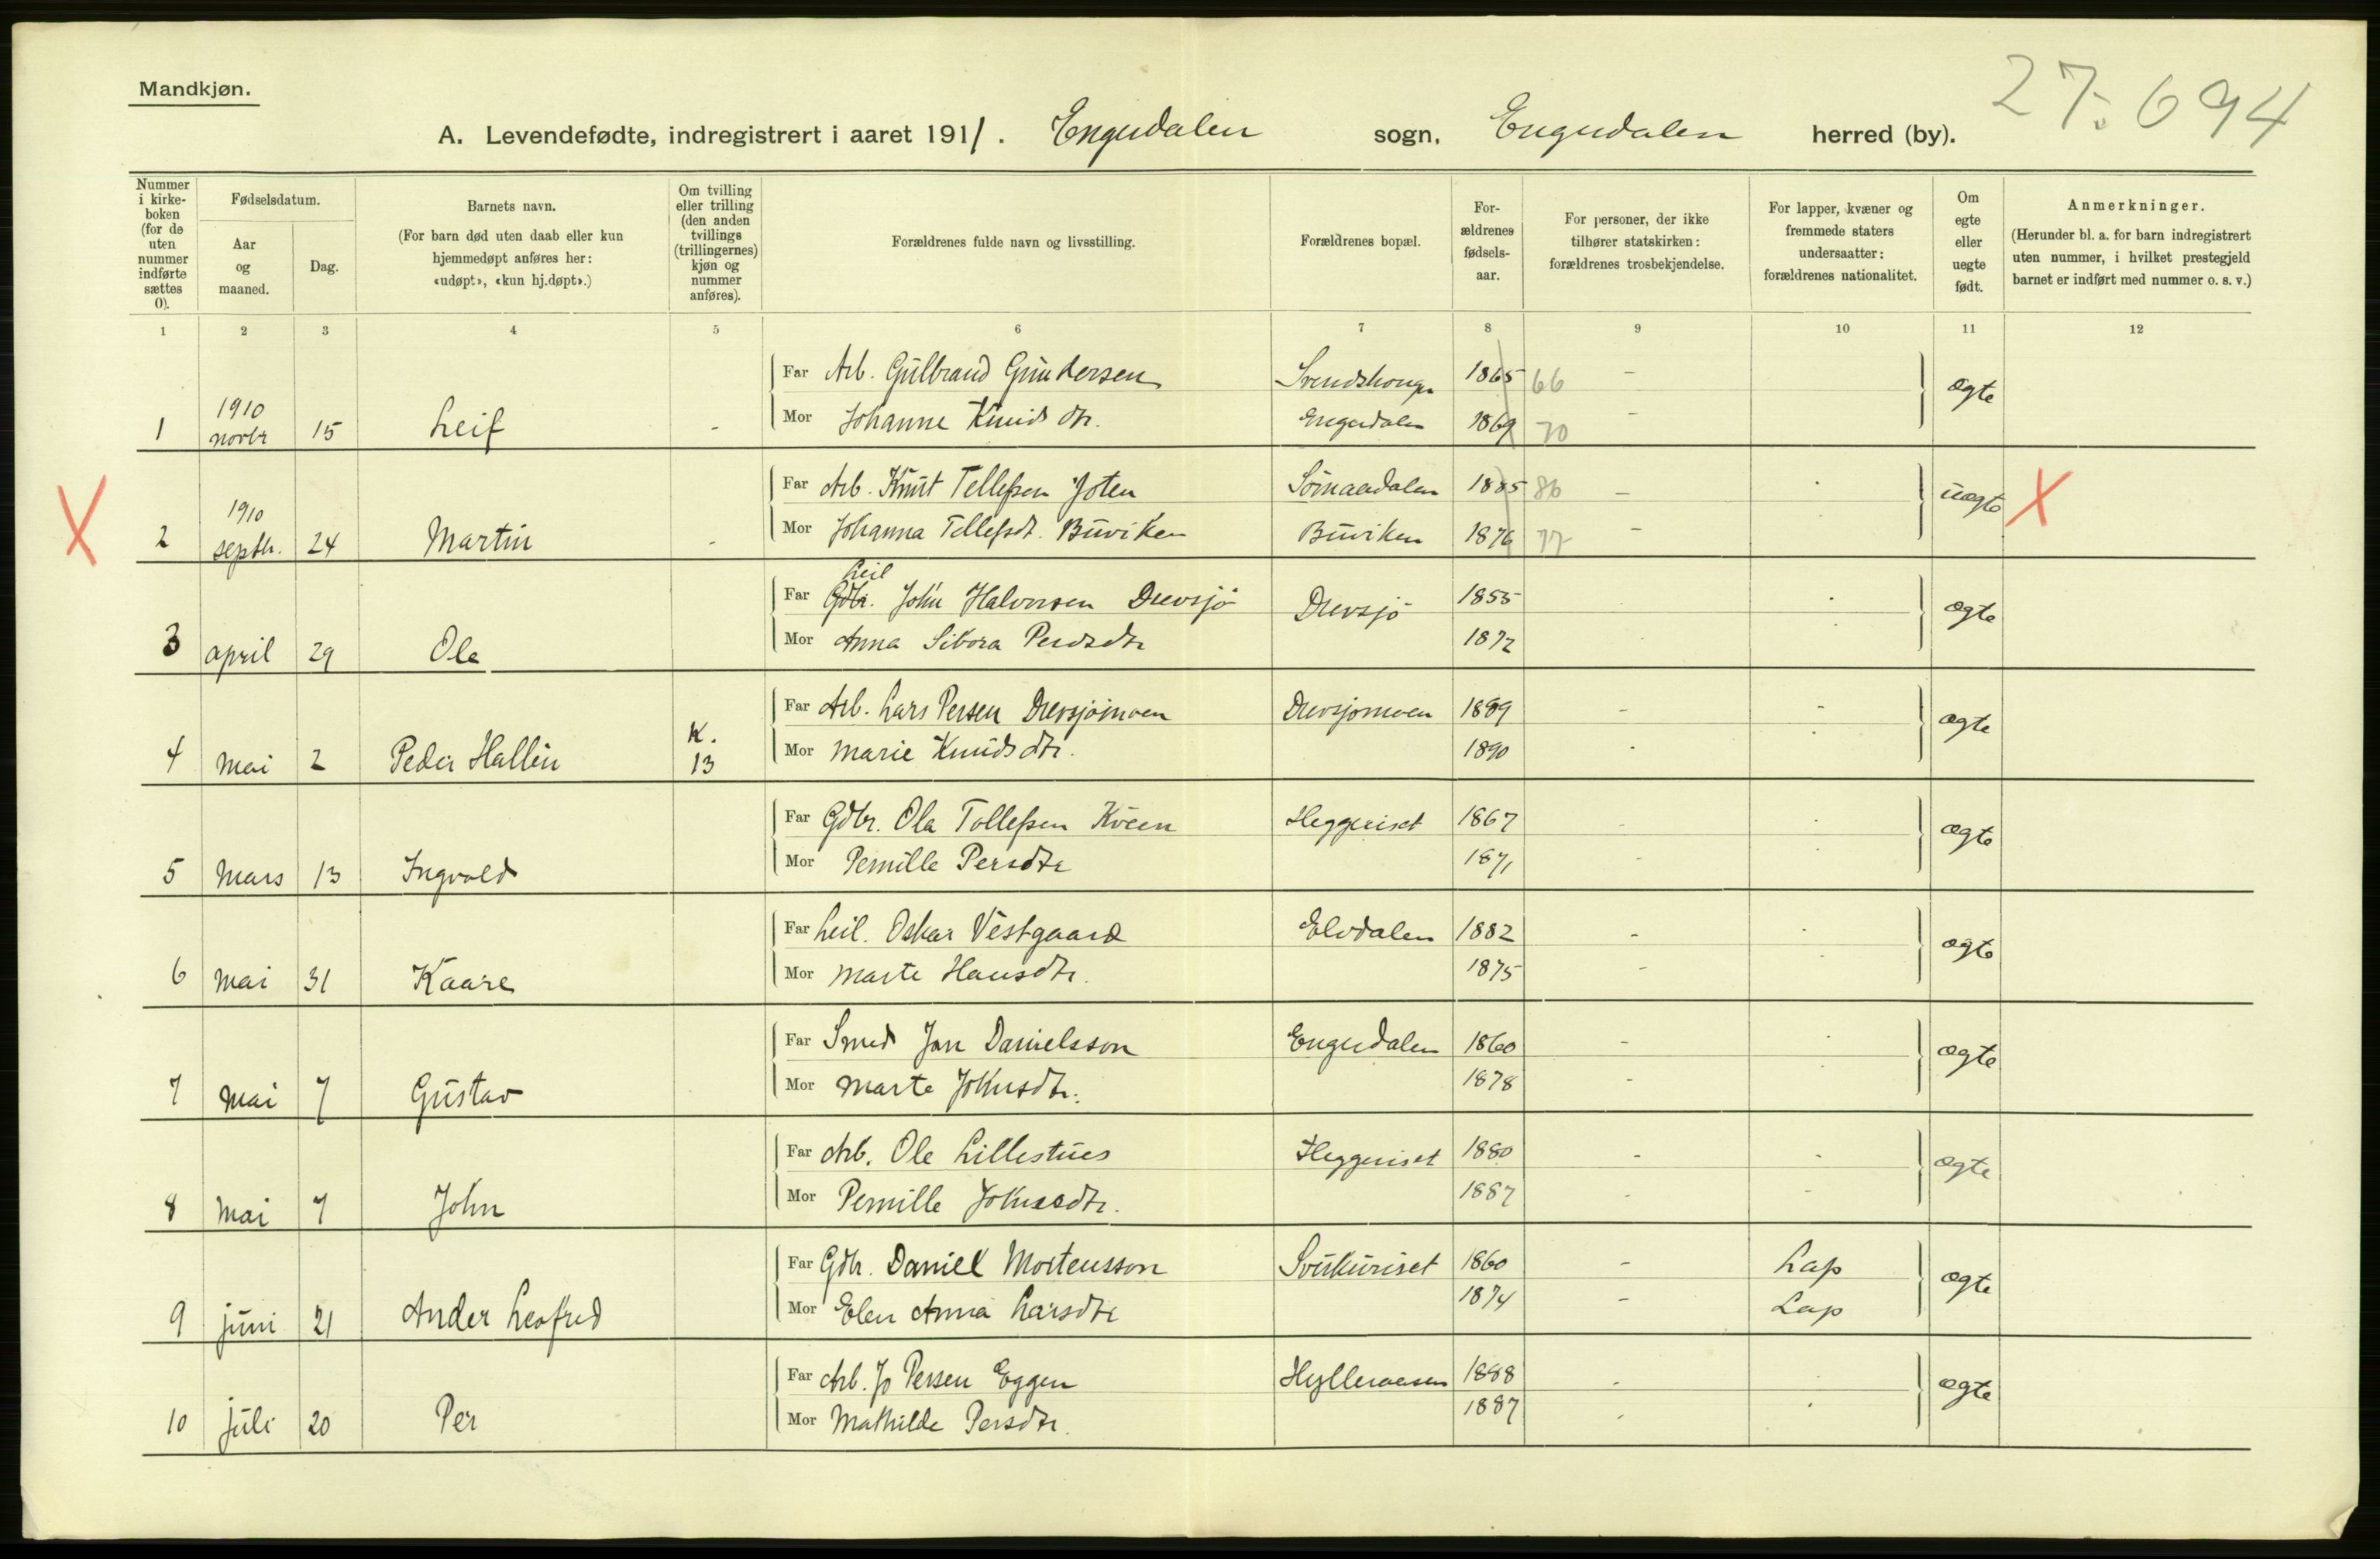 Mandkjøn.
27. 694
A. Levendefødte, indregistrert i aaret 1911. Engerdalen sogn, Engerdalen herred (by).
Nummer i kirke-boken (for de uten nummer indførte sættes 0).
Fødselsdatum.
Aar og maaned.
Dag.
Barnets navn.
(For barn død uten daab eller kun hjemmedøpt anføres her: «udøpt», «kun hj.døpt».)
Om tvilling eller trilling (den anden tvillings (trillingernes) kjøn og nummer anføres).
Forældrenes fulde navn og livsstilling.
Forældrenes bopæl.
For-ældrenes fødsels-aar.
For personer, der ikke tilhører statskirken: forældrenes trosbekjendelse.
For lapper, kvæner og fremmede staters undersaatter: forældrenes nationalitet.
Om egte eller uegte født.
Anmerkninger.
(Herunder bl. a. for barn indregistrert uten nummer, i hvilket prestegjeld barnet er indført med nummer o. s. v.)
1 2 3 4 5 6 7 8 9 10 11 12
Far Arb. Gulbrand Gundersen 1865 66 - ægte
1 1910 novbr 15 Leif - Mor Johanne Knudsdtr. Engerdalen 1869 70 -
Far Arb. Knut Tellefsen Joten Sømaadalen 1885 86 - - uægte X
X 2 1910 septbr. 24 Martin - Mor Johanna Tollefsdt. Buviken Buviken 1876 77 -
Leil
Far Gdbr. John Halvorsen Drevsjø Drevsjø 1855 - ægte
3 april 29 Ole Mor Anna Sibora Persdtr 1872
Far Arb. Lars Persen Drevsjømoen Drevsjømoen 1889 - - ægte
4 mai 2 Peder Hallin K. 13 Mor Marie Knudsdtr. 1890 - -
Far Gdbr. Ola Tollefsen Kveen Heggeriset 1867 - - ægte
5 Mars 13 Ingvald Mor Pernille Persdtr 1871 - -
Far Leil. Oskar Vestgaard Elvdalen 1882 - - ægte
6 Mai 31 Kaare Mor Marte Hansdtr. 1875 - -
Far Smed Jon Danielsson Engerdalen 1860 - - ægte
7 Mai 7 Gustav Mor Marte Johnsdtr. 1878 - -
Far Arb. Ole Lillestues Heggeriset 1880 - - ægte
8 Mai 7 John Mor Pernille Johnsdtr. 1887 - -
Far Gdbr. Daniel Mortensson Svukuriset 1860 - Lap ægte
9 juni 21 Ander Leofred Mor Elen Anna Larsdtr 1874 - Lap
Far Arb. Jo Persen Eggen Hylleraasen 1888 - - ægte
10 juli 20 Per Mor Mathilde Persdtr. 1887 - -